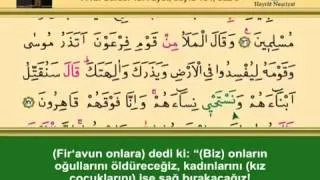 Hayrât Neşriyat
مُسْلِمِينَ وَقَالَ الْمَلَأُ مِنْ قَوْمِ فِرْعَوْنَ اَتَذَرُ مُوسٰى
وَقَوْمَهُ لِيُفْسِدُوا فِى الْاَرْضِ وَيَذَرَكَ وَاٰلِهَتَكَ قَالَ سَنُقَتِّلُ
اَبْنَٓاءَهُمْ وَنَسْتَحْيٖ نِسَٓاءَهُمْ وَاِنَّا فَوْقَهُمْ قَاهِرُونَ
(Fir'avun onlara) dedi ki: "(Biz) onların
oğullarını öldüreceğiz, kadınlarını (kız
çocuklarını) ise sağ bırakacağız!